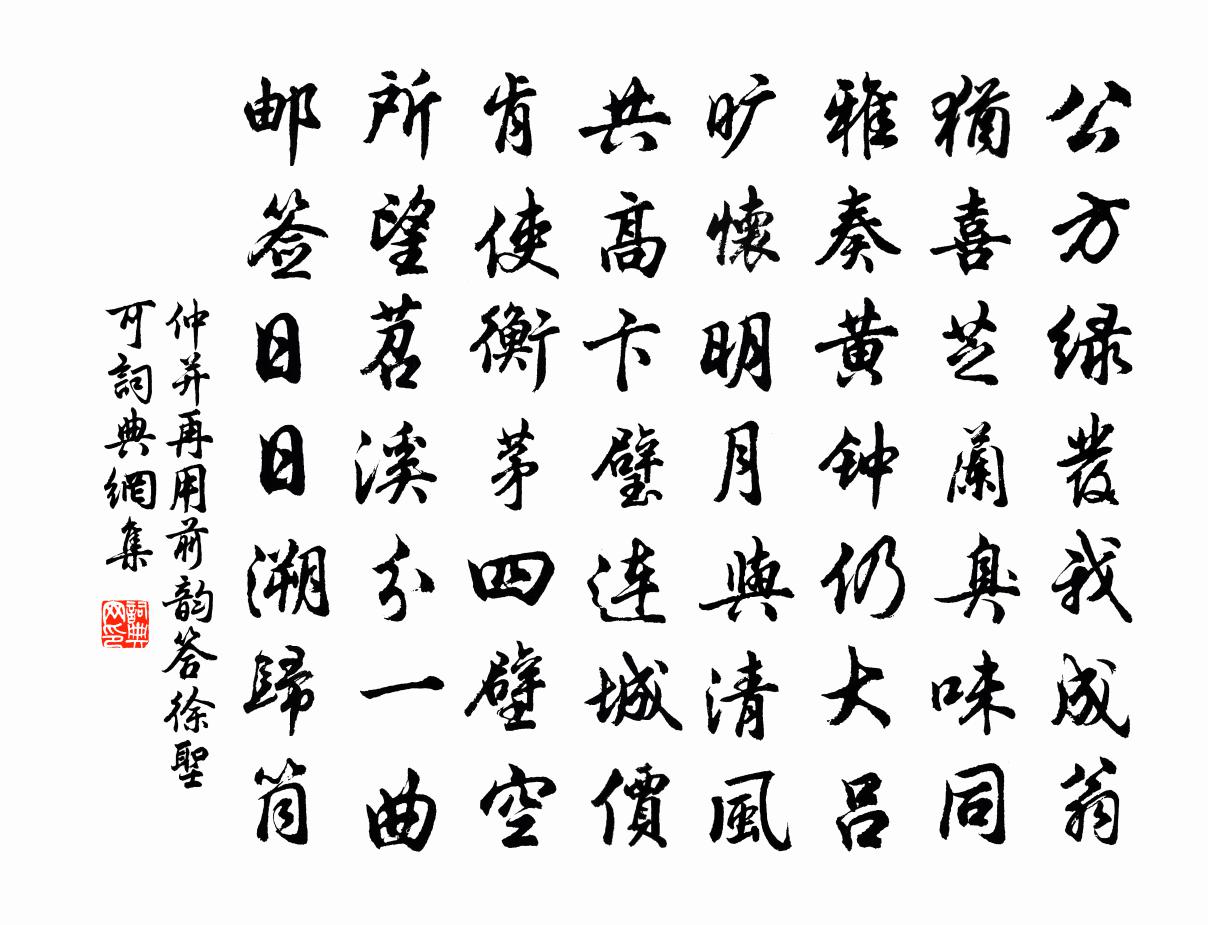 公方绿發我成翁
猶喜芝蘭臭味同
雅奏黄钟仍大吕
旷懷明月與清風
共高卞璧連城價
肯使衡茅四壁空
所望苕溪分一曲
邮签日日溯歸筒
仲并再用前韵答徐聖
可詞典網集
詞典网印